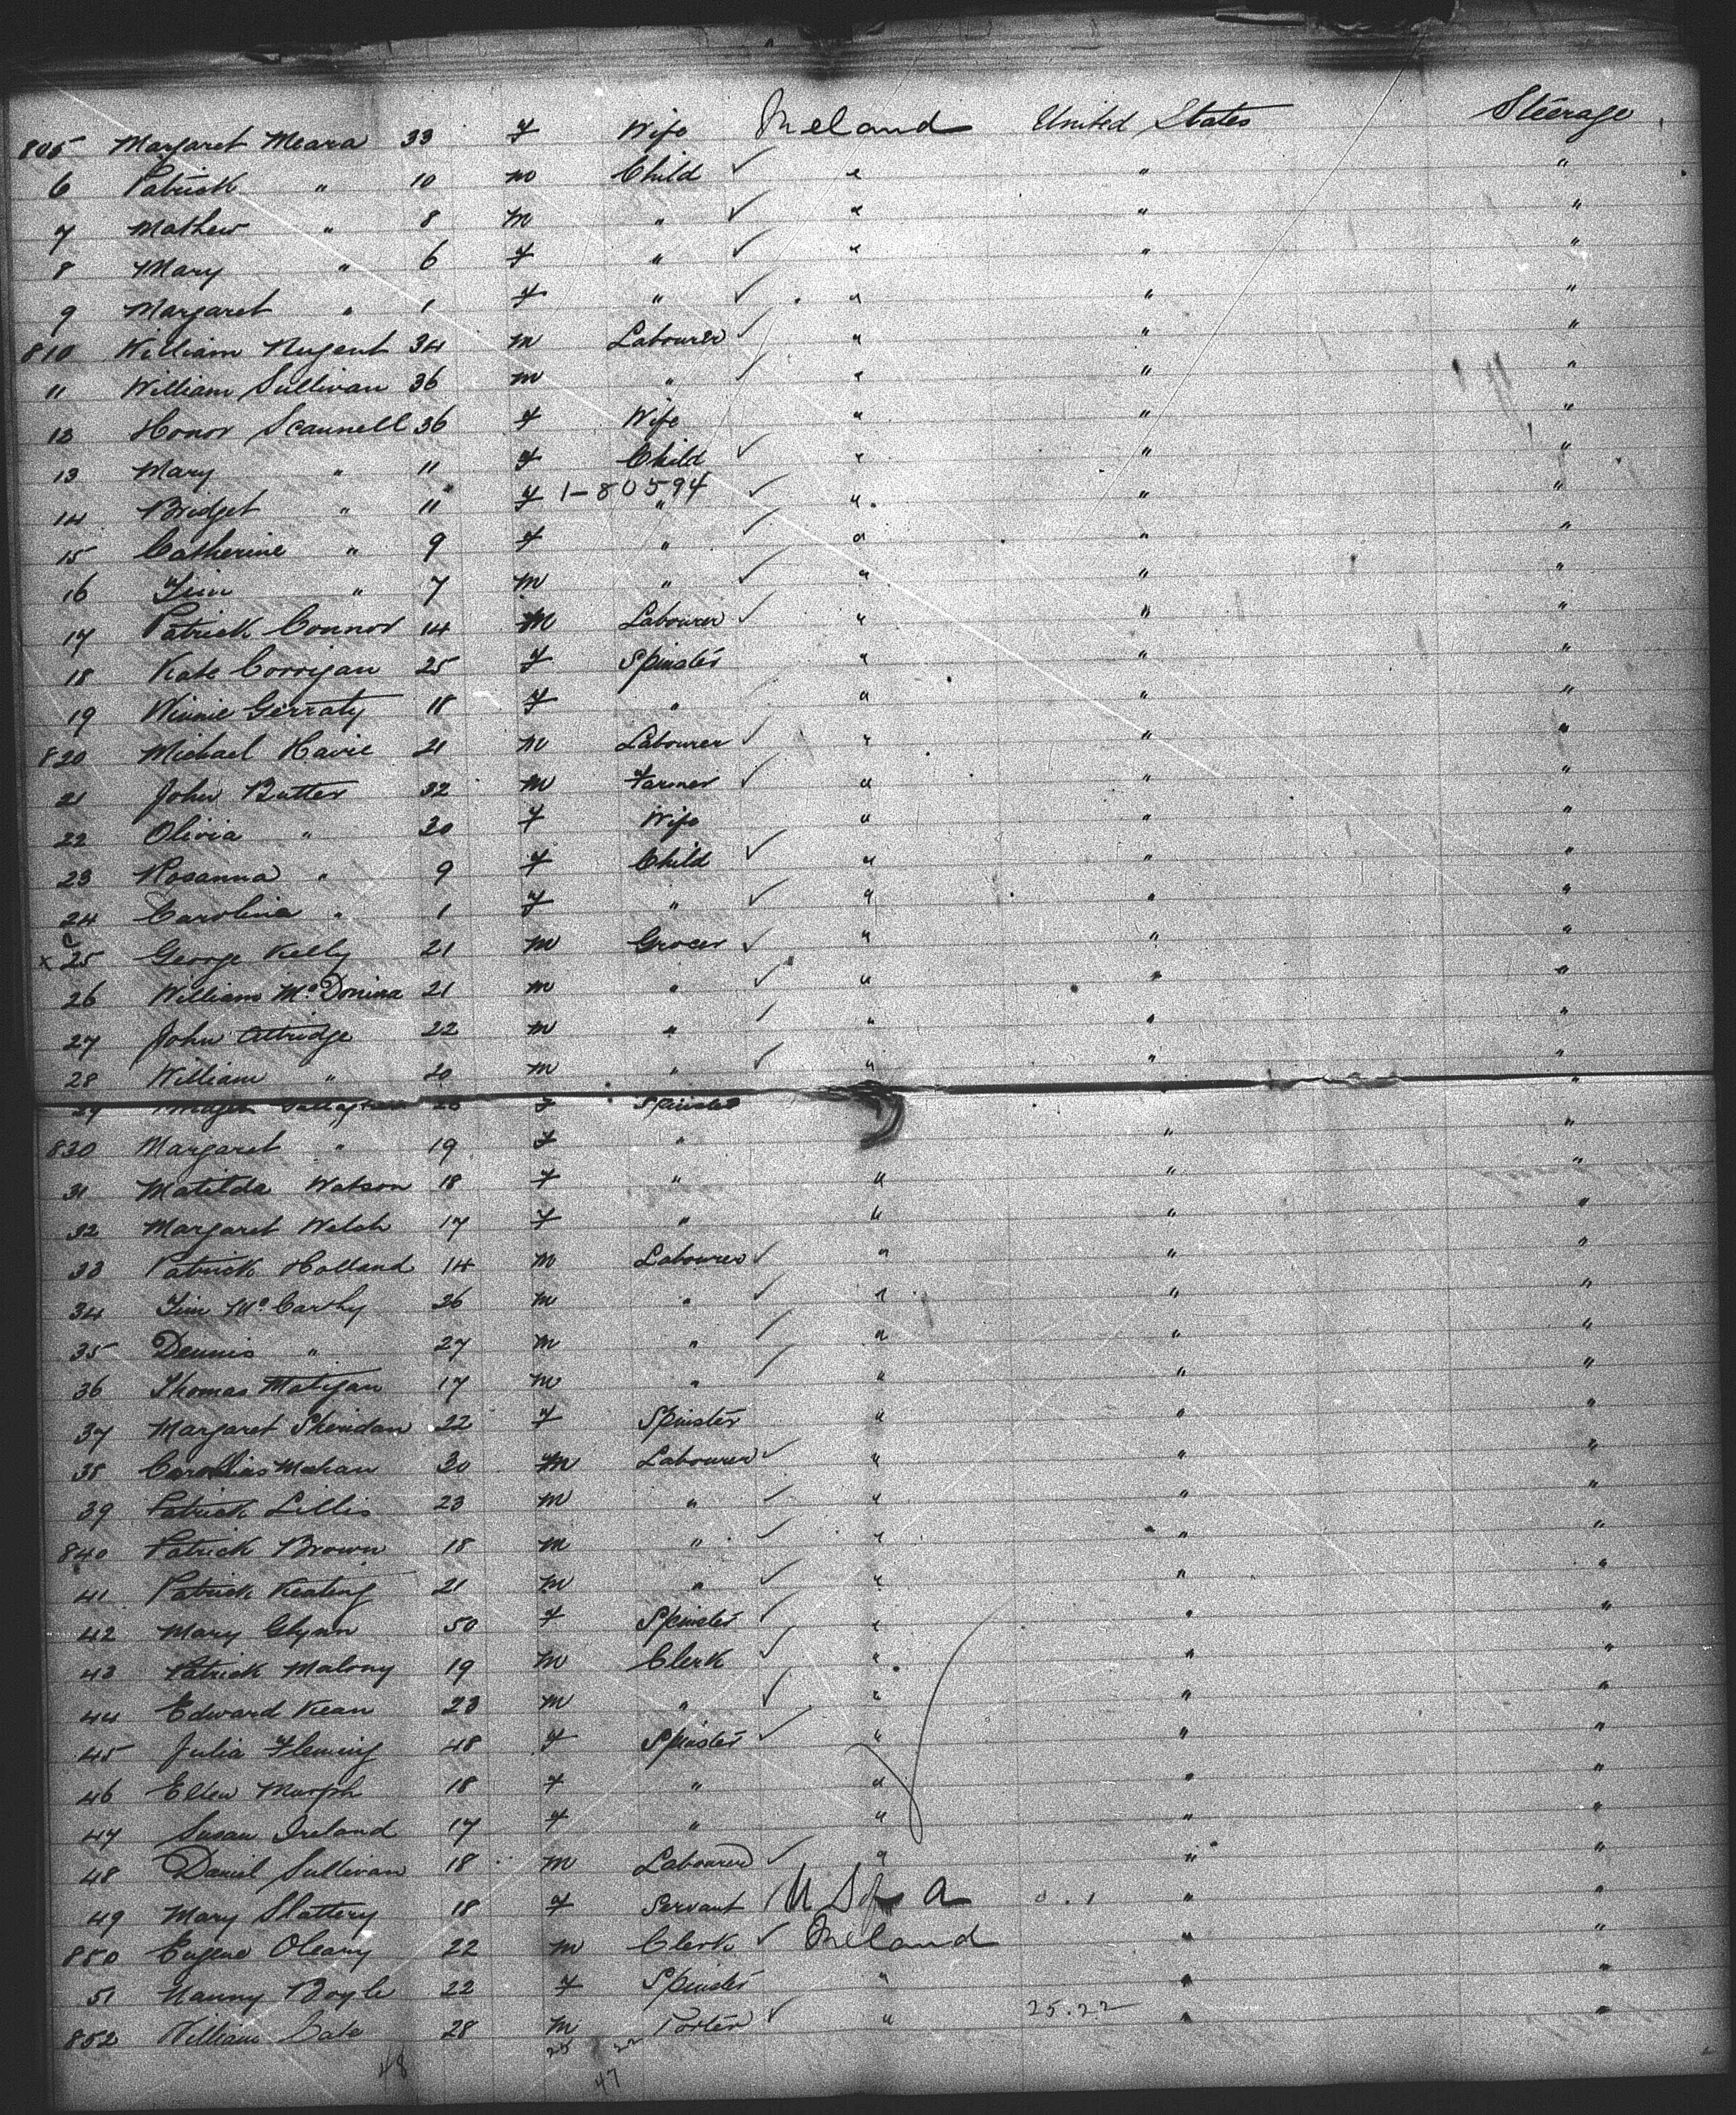 805 Margaret Meara 33 F Wife Ireland United States Steerage
6 Patrick " 10 M Child ✓ " " "
7 Mathew " 8 M " ✓ " " "
8 Mary " 6 F " ✓ " " "
9 Margaret " 1 F " ✓ " " "
810 William Nugent 34 M Labourer ✓ " " "
11 William Sullivan 36 M " ✓ " " "
12 Honor Scannell 36 F Wife " " "
13 Mary " 11 F Child ✓ " " "
1-80594
14 Bridget " 11 F " ✓ " " "
15 Catherine " 9 F " ✓ " " "
16 Tim " 7 M " ✓ " " "
17 Patrick Connor 14 M Labourer ✓ " " "
18 Kate Corrigan 25 F Spinster " " "
19 Winnie Gerraty 18 F " " " "
820 Michael 21 M Labourer ✓ " " "
21 John Butter 32 M Farmer ✓ " " "
22 Olivia " 30 F Wife " " "
23 Rosanna " 9 F Child ✓ " " "
24 Carolina " 1 F " ✓ " " "
x 25 George Kelly 21 M Grocer ✓ " " "
26 William 21 M " ✓ " " "
27 John Attridge 22 M " ✓ " " "
28 William " 20 M " ✓ " " "
29 F Spinster "
830 Margaret " 19 F " " "
31 Matilda Watson 18 F " " " "
32 Margaret Welch 17 F " " " "
33 Patrick Holland 14 M Labourer ✓ " " "
34 Tim McCarthy 26 M " ✓ " " "
35 Dennis " 27 M " ✓ " " "
36 Thomas Matigan 17 M " ✓ " " "
37 Margaret Sheridan 22 F Spinster " " "
38 Mahan 30 M Labourer ✓ " " "
39 Patrick Lillis 23 M " ✓ " " "
840 Patrick Brown 18 M " ✓ " " "
41 Patrick Keating 21 M " ✓ " " "
42 Mary Glynn 50 F Spinster ✓ " " "
43 Patrick Malony 19 M Clerk ✓ " " "
44 Edward Kean 23 M " ✓ " " "
45 Julia Fleming 48 F Spinster ✓ " " "
46 Ellen Murph 18 F " " " "
47 Susan Ireland 17 F " " " "
48 Daniel Sullivan 18 M Labourer ✓ " " "
49 Mary Slattery 18 F Servant U S of A " "
850 Eugene Oleary 22 M Clerk ✓ Ireland " "
51 Nanny Boyle 22 F Spinster " " "
852 William Bate 28 M Porter ✓ " 25.22 " "
48 47